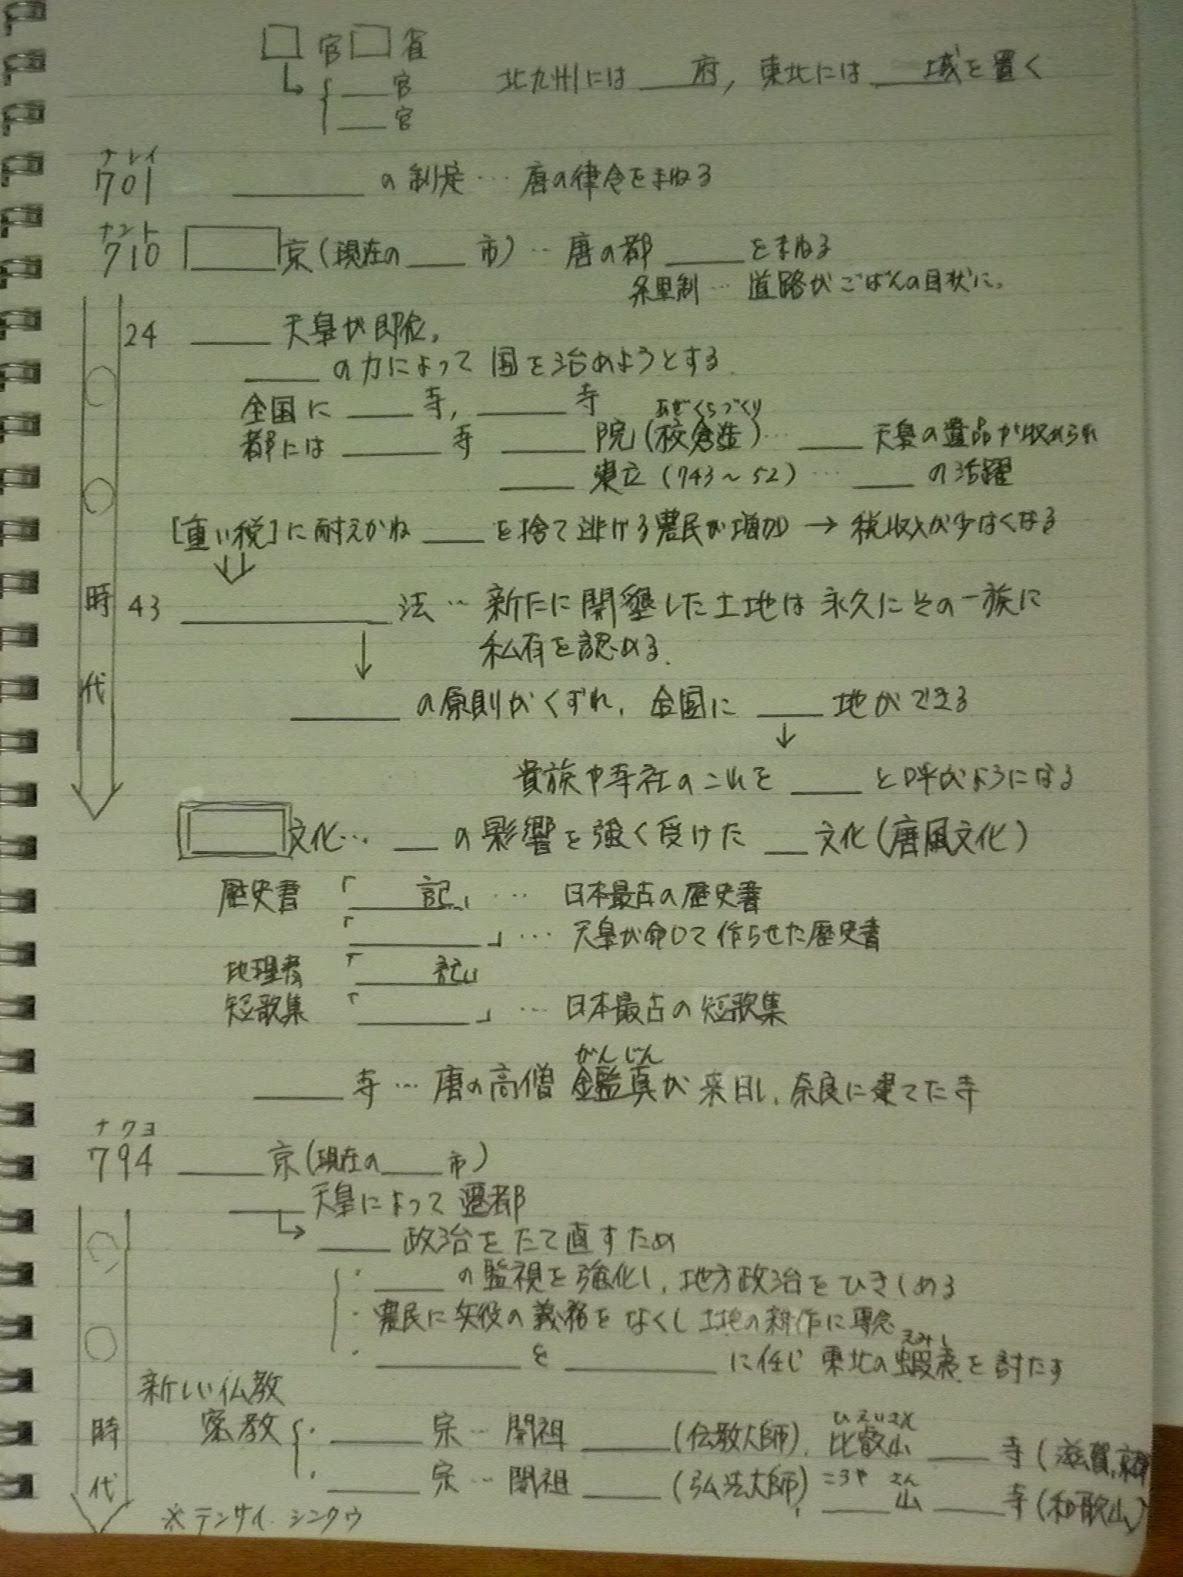 □官□省
北九州には＿＿府，東北には＿＿城を置く
＿＿官
＿＿官
ナレイ
701 ＿＿＿＿の制定… 唐の律令をまねる
ナント
710 □京(現在の＿＿市)… 唐の都＿＿＿をまねる
条里制… 道路がごばんの目状に。
24 ＿＿＿天皇が即位。
＿＿＿の力によって国を治めようとする.
全国に＿＿＿寺，＿＿＿寺
あぜくらづくり
都には＿＿＿寺 ＿＿＿院(校倉造)… ＿＿＿天皇の遺品が収められ
＿＿＿建立(743〜52)… ＿＿＿の活躍
[重い税]に耐えかね＿＿＿を捨て逃げる農民が増加→税収入が少なくなる
時 43 ＿＿＿＿＿＿法… 新たに開墾した土地は永久にその一族に
私有を認める.
代 ＿＿＿＿の原則がくずれ，全国に＿＿＿地ができる
貴族や寺社のこれを＿＿＿と呼ぶようになる
□文化… ＿＿の影響を強く受けた＿＿文化(唐風文化)
歴史書「＿＿＿記」… 日本最古の歴史書
「＿＿＿＿」… 天皇が命じて作らせた歴史書
地理書「＿＿＿記」
短歌集「＿＿＿＿」… 日本最古の短歌集
がんじん
＿＿＿寺… 唐の高僧 鑑真が来日し、奈良に建てた寺
ナクヨ
794 ＿＿＿京(現在の＿＿＿市)
＿＿＿天皇によって遷都
＿＿＿政治をたて直すため
・＿＿＿の監視を強化し，地方政治をひきしめる
・農民に兵役の義務をなくし土地の耕作に専念
えみし
・＿＿＿＿を＿＿＿＿に任じ東北の蝦夷を討たす
新しい仏教
ひえいざん
時 密教 ・＿＿＿宗… 開祖＿＿＿(伝教大師)，比叡山＿＿＿寺(滋賀，京都
こうやさん
代 ・＿＿＿宗… 開祖＿＿＿(弘法大師)，＿＿＿山＿＿＿寺(和歌山)
※テンサイ シンクウ